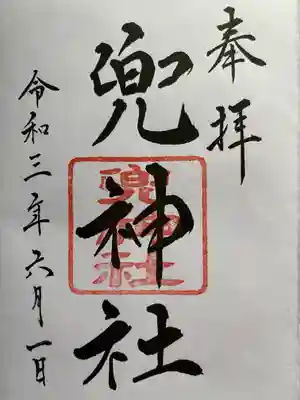 奉拝
兜神社
兜神社
令和三年六月一日